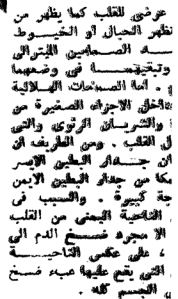 عرضي للقلب كما يظهر من
تظهر الحبال أو الخيوط
الصمامين
في وضعهما
. أما الصمامات الهلالية
داخل الأجزاء الصغيرة من
والشريان الرئوى والتى
القلب . ومن الطريف أن
أن جدار البطين الأيسر
من جدار البطين الأيمن
كبيرة . والسبب فى
الناحية اليمنى من القلب
إلا مجرد ضخ الدم الى
، على عكس الناحية
التى يقع عليها عبء ضخ
الجسم كله .